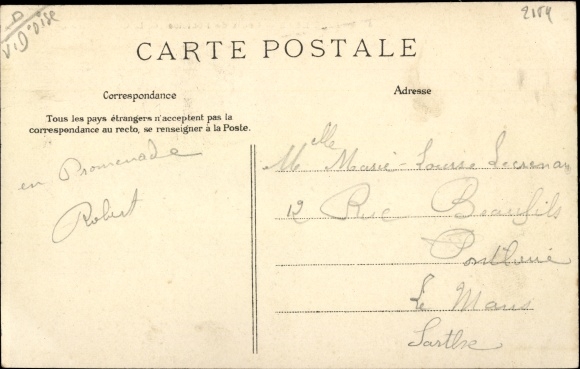 Val d'Oise
2184
CARTE POSTALE
Correspondance
Adresse
Tous les pays étrangers n'acceptent pas la
correspondance au recto, se renseigner à la Poste.
en Promenade
Robert
Melle Marie-Louise
12 Rue Beaufils
Pontlieue
Le Mans
Sarthe